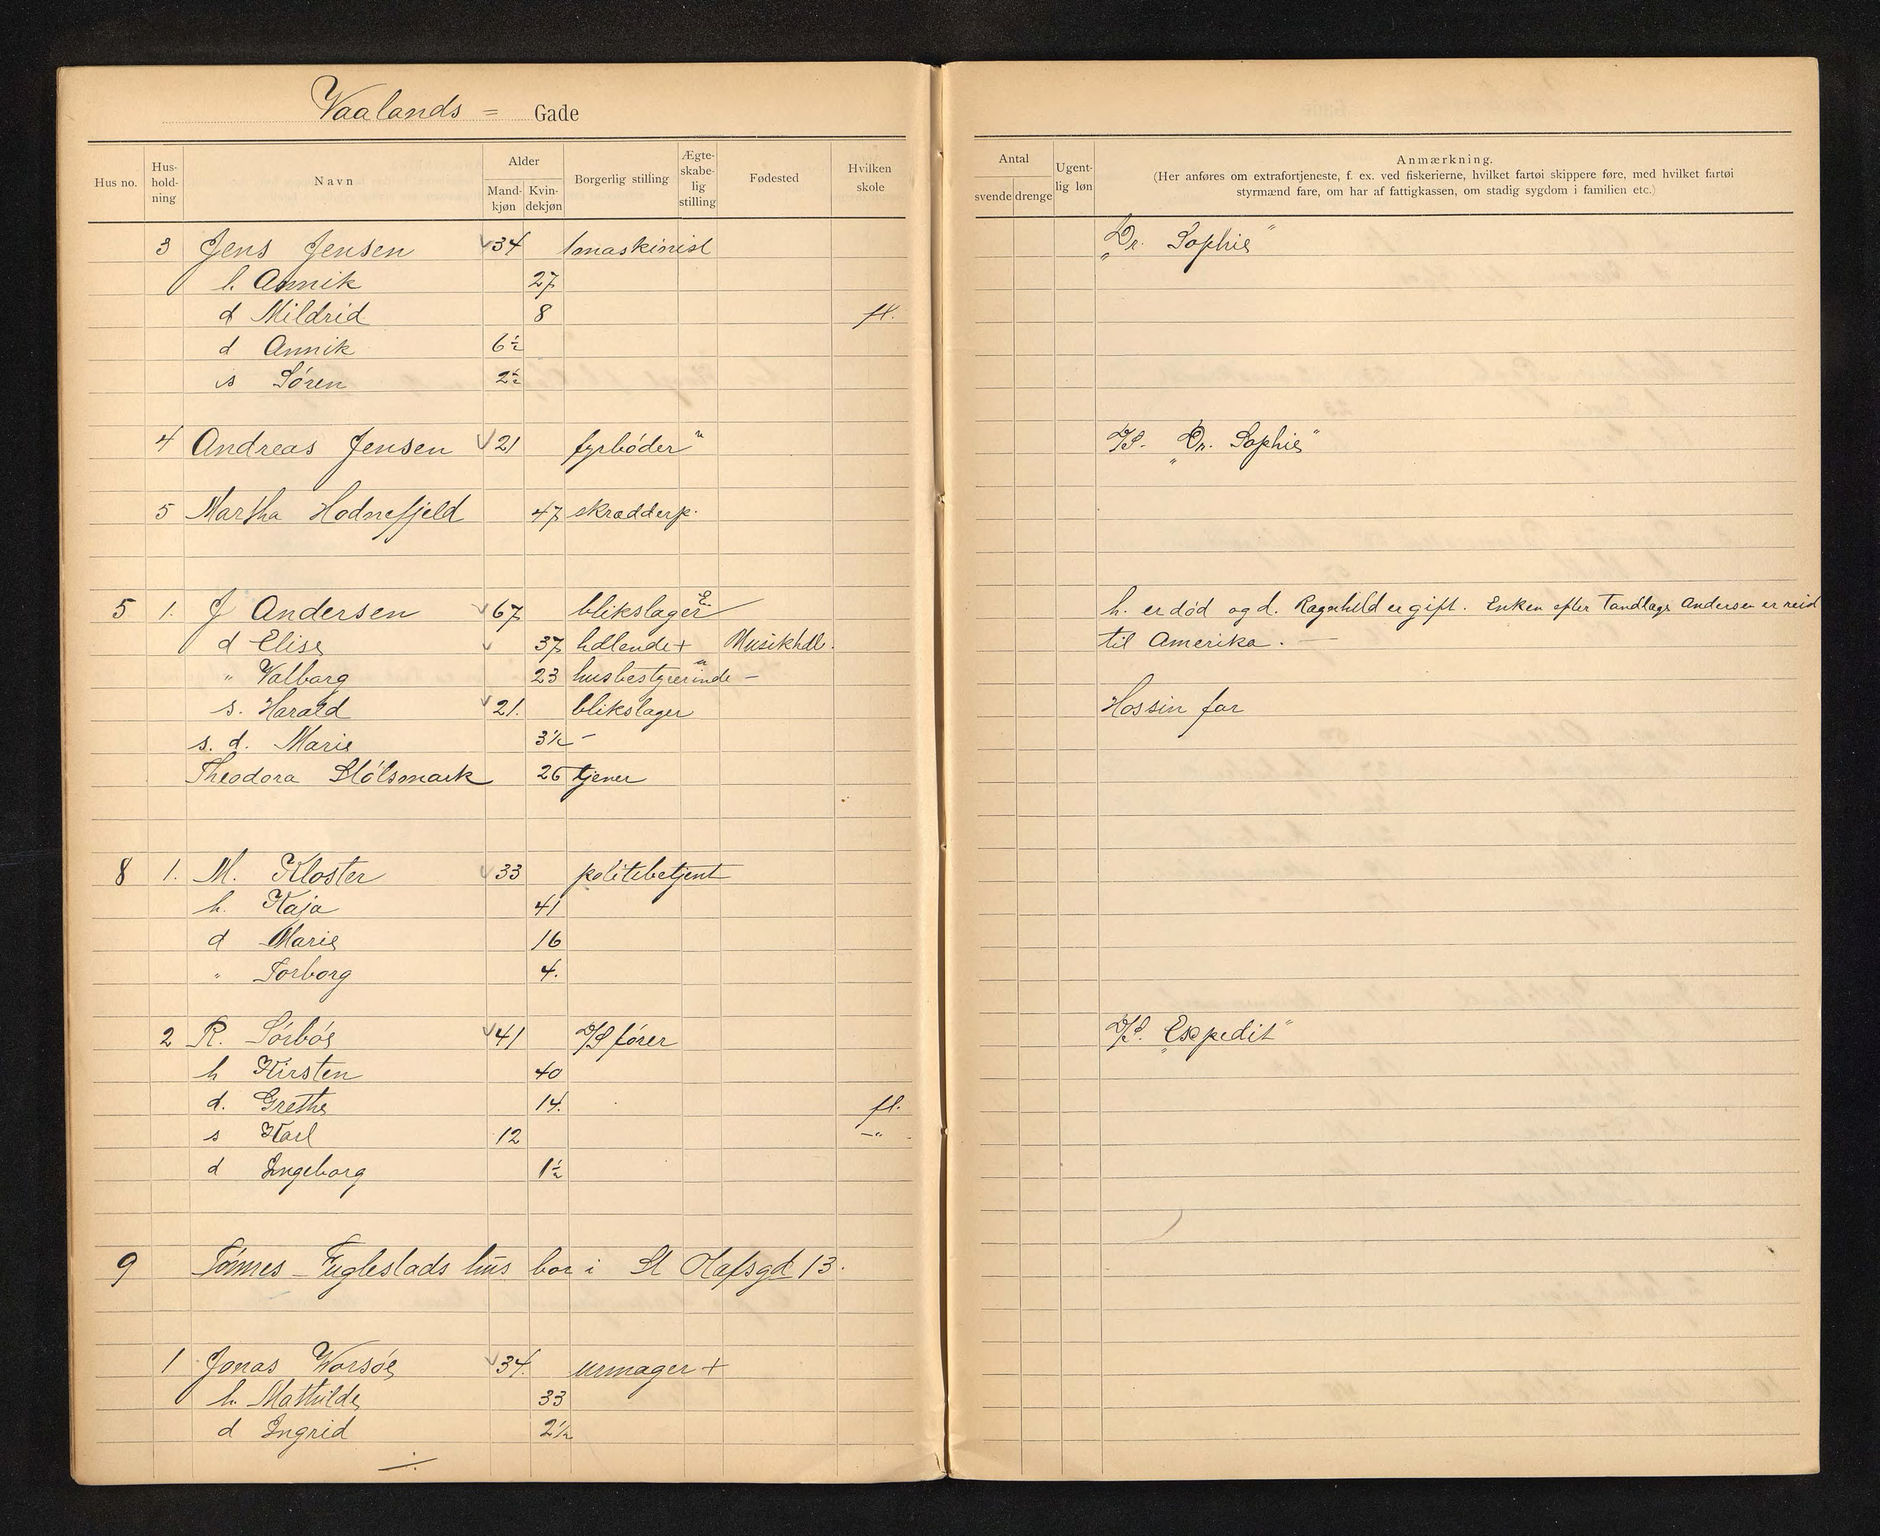 Vaalands = Gade
Hus no. Hus-hold-ning Navn Alder Mand-kjøn Kvin-dekjøn Borgerlig stilling Ægte-skabe-lig stilling Fødested Hvilken skole
Antal svende drenge Ugent-lig løn Anmærkning.
(Her anføres om extrafortjeneste, f. ex. ved fiskerierne, hvilket fartøi skippere føre, med hvilket fartøi
styrmænd fare, om har af fattigkassen, om stadig sygdom i familien etc.)
3 Jens Jensen 34 1maskinist „Dr. Sophie"
h. Annik 27
d Mildrid 8 fl.
d Annik 6½
s Søren 2½
4 Andreas Jensen 21 fyrbøder u D/S. „Dr. Sophie"
5 Martha Hodnefjeld 47 skrædderp.
5 1. J Andersen 67 blikslager E. h. er død og d. Ragnhild er gift. Enken efter Tandlage Andersen er reist
d Elise 37 hdlende + Musikhdl. til Amerika. —
" Valborg 23 husbestyrerinde u —
s. Harald 21. blikslager Hos sin far
s. d. Marie 3½ -
Theodora Stølsmark 26 tjener
8 1. M. Kloster 33 politibetjent
h. Kaja 41
d Marie 16
" Torborg 4.
2 R. Sørbøe 41 D/S fører D/S. „Expedit"
h Kirsten 40
d. Grethe 14. fl.
s Karl 12 —"—
d Ingeborg 1½
9 Tønnes Fuglestads hus bor i St Olafsgd 13.
1 Jonas Worsøe 34. urmager +
h. Mathilde 33
d Ingrid 2½